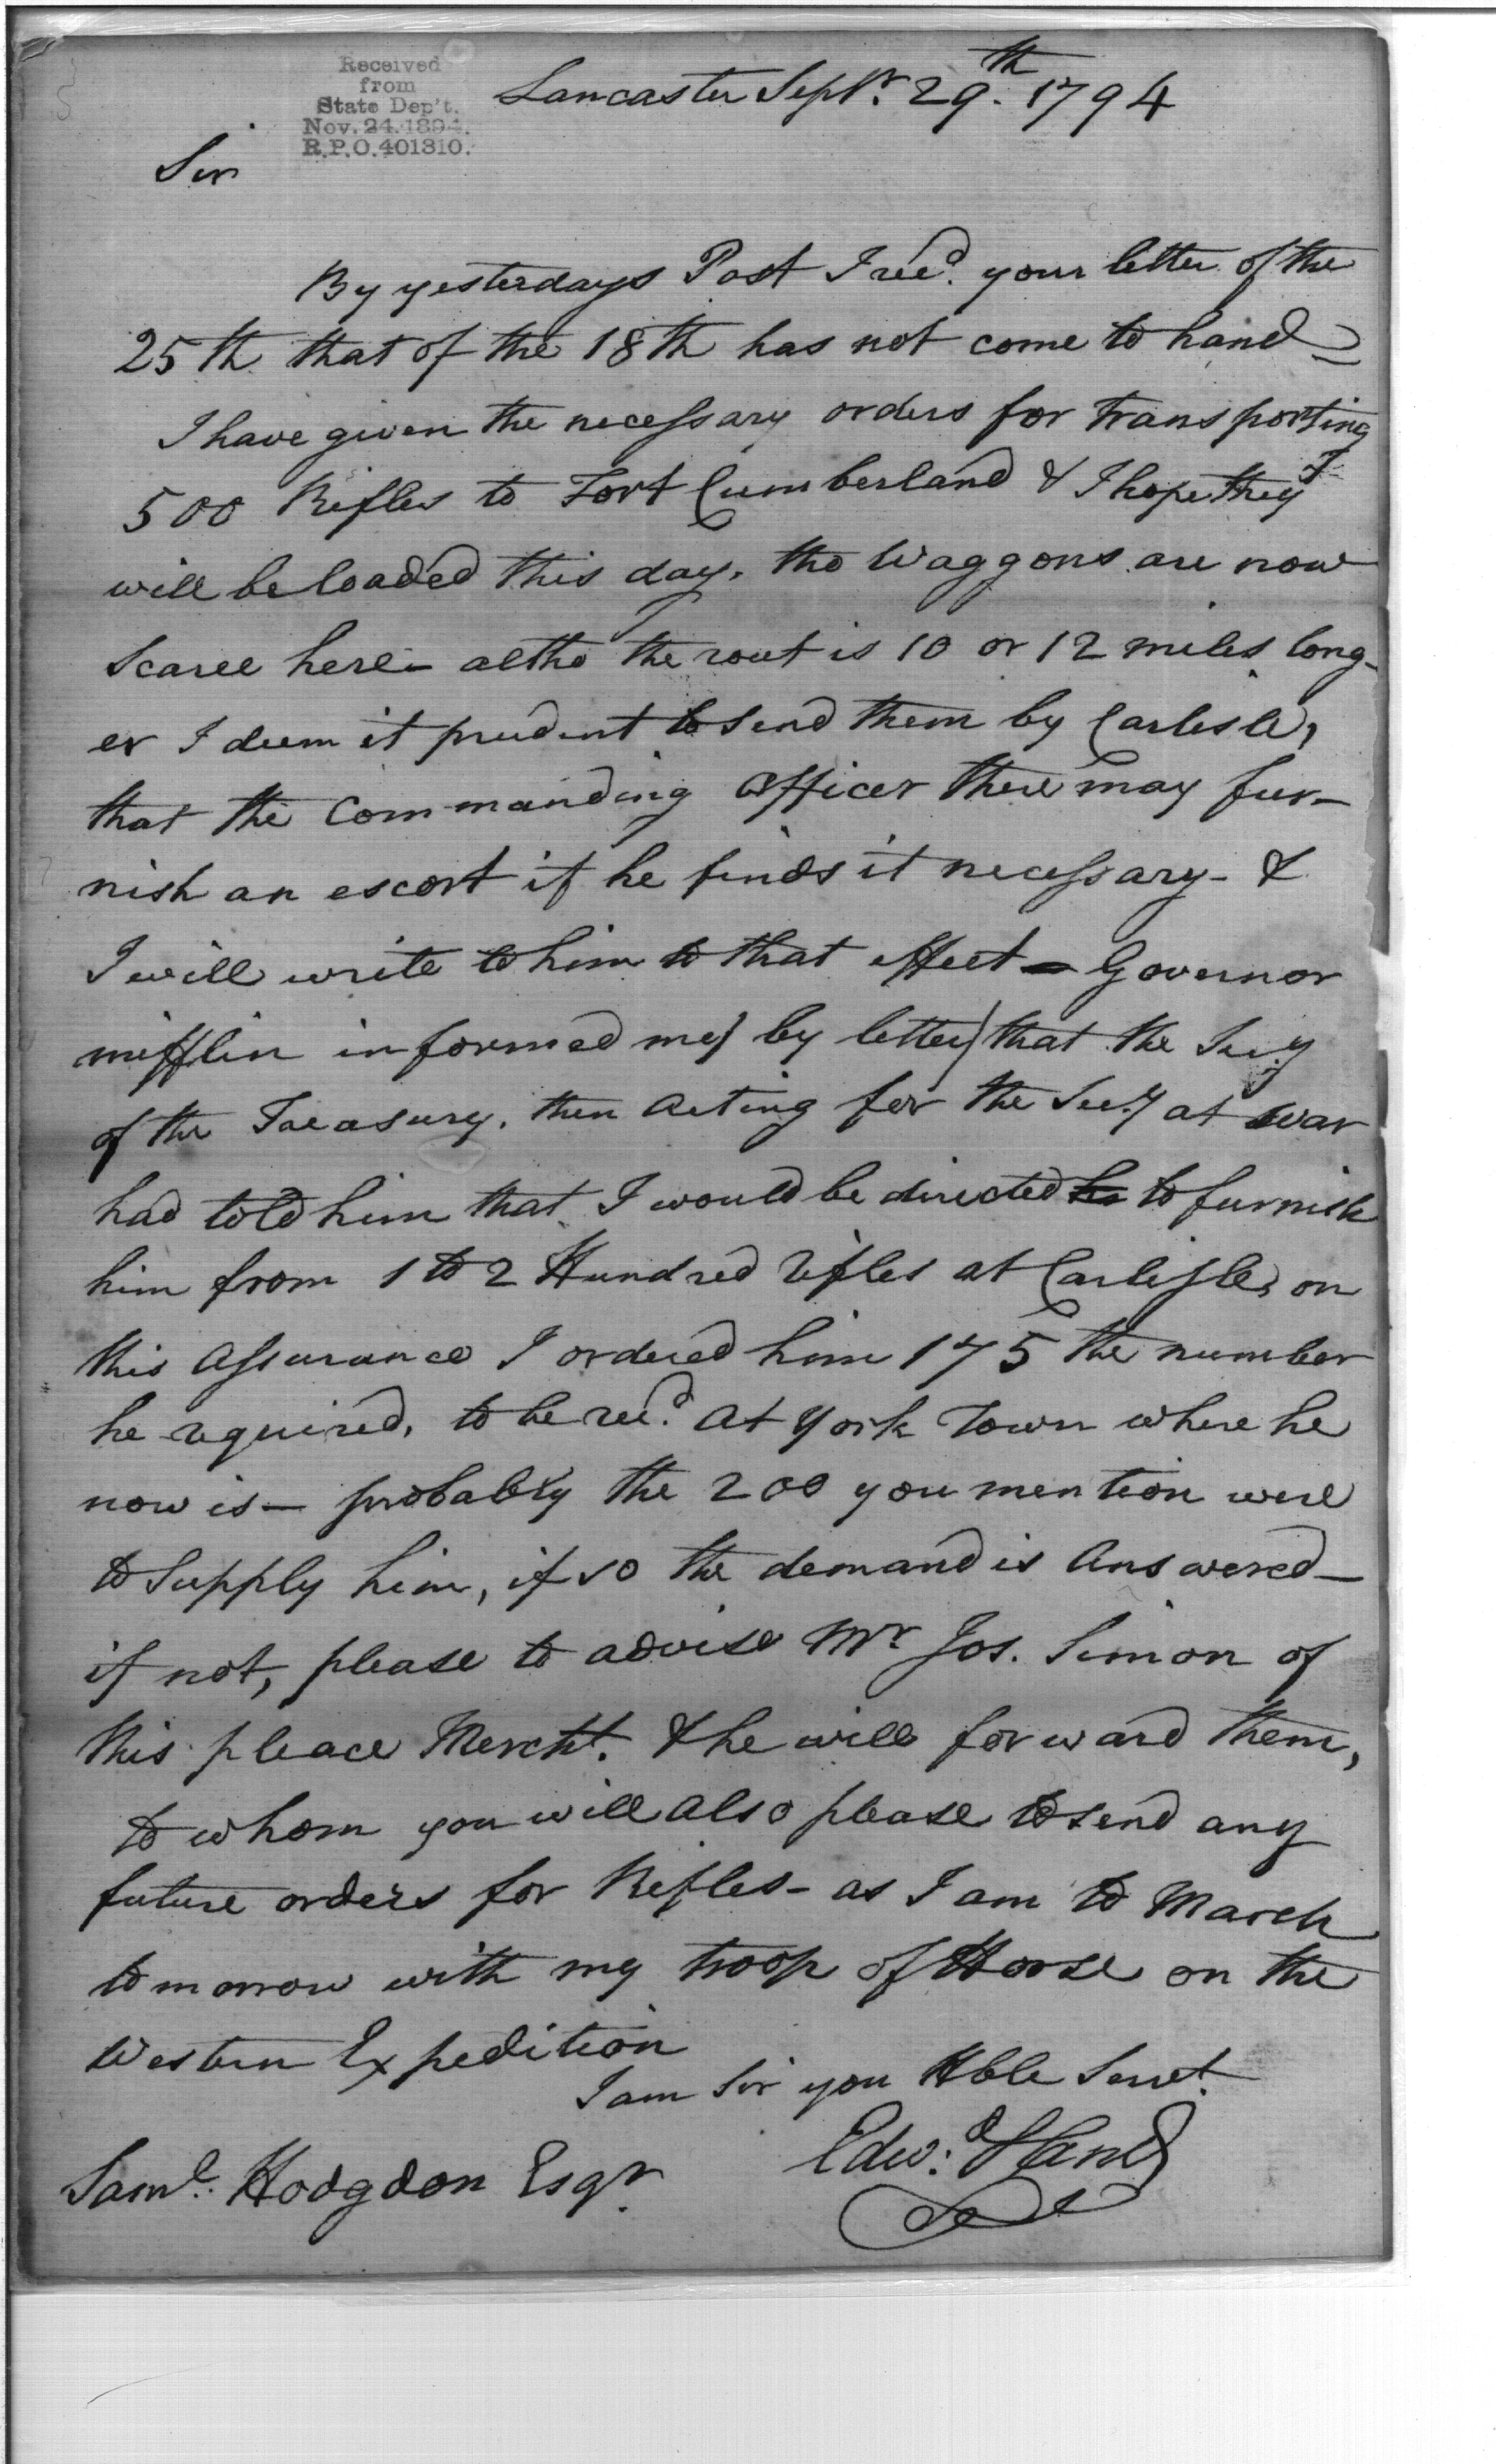 Received
from
State Dep't.
Nov. 24. 1894.
R.P.O. 401310.
Lancaster Septr. 29th. 1794
Sir
By yesterdays Post I recd. your letter of the
25th that of the 18th has not come to hand
I have given the necessary orders for transporting
500 Rifles to Fort Cumberland & I hope they
will be loaded this day, tho Waggons are now
Scarce here - altho the rout is 10 or 12 miles long-
er I deem it prudent to send them by Carlisle,
that the Commanding Officer there may fur-
nish an escort if he finds it necessary - &
I will write to him to that effect - Governor
mifflin informed me) by letter) that the Secy.
of the Treasury, then Acting for the Secy. at war
had told him that I would be directed to furnish
him from 1 to 2 Hundred rifles at Carlisle, on
this Assurance I ordered him 175 the number
he required, to be recd. At York Town where he
now is - probably the 200 you mention were
to Supply him, if so the demand is Answered -
if not, please to advise Mr Jos. Simon of
this pleace Mercht. & he will forward them,
to whom you will also please to send any
future orders for Rifles - as I am to March
tomorrow with my troop of Horse on the
Western Expedition
I am Sir you Hble Servt.
Edwd. Hand
Saml. Hodgdon Esqr.